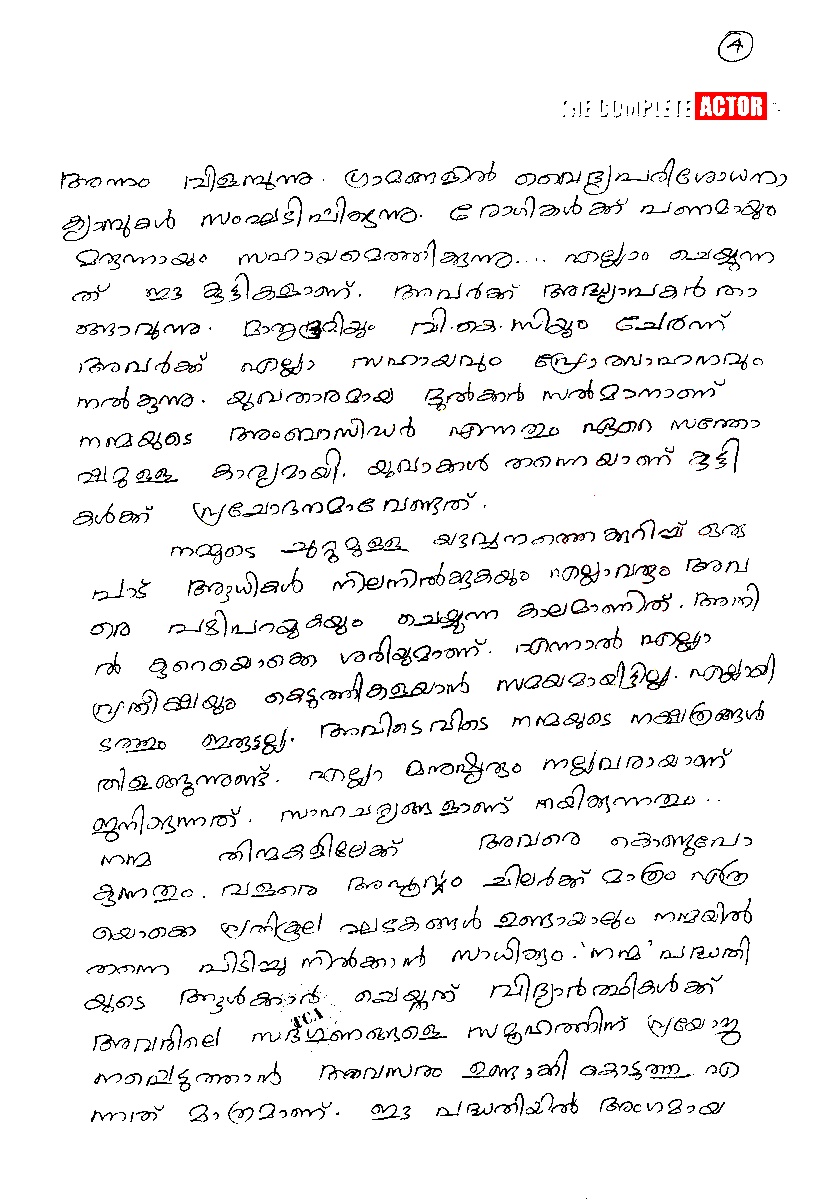 4
THE COMPLETE ACTOR
അന്നം വിളമ്പുന്നു. ഗ്രാമങ്ങളിൽ വൈദ്യപരിശോധനാ
ക്യാമ്പുകൾ സംഘടിപ്പിക്കുന്നു. രോഗികൾക്ക് പണമായും
മരുന്നായും സഹായമെത്തിക്കുന്നു.... എല്ലാം ചെയ്യുന്ന
ത് ഈ കുട്ടികളാണ്. അവർക്ക് അദ്ധ്യാപകൻ താ
ങ്ങാവുന്നു. മാതൃഭൂമിയും വി.കെ.സിയും ചേർന്ന്
അവർക്ക് എല്ലാ സഹായവും പ്രോത്സാഹനവും
നൽകുന്നു. യുവതാരമായ ദുൽക്കർ സൽമാനാണ്
നന്മയുടെ അംബാസിഡർ എന്നതും ഏറെ സന്തോ
ഷമുള്ള കാര്യമായി. യുവാക്കൾ തന്നെയാണ് കുട്ടി
കൾക്ക് പ്രചോദനമാവേണ്ടത്.
നമ്മുടെ ചുറ്റുമുള്ള യൗവ്വനത്തെക്കുറിച്ച് ഒരു
പാട് ആധികൾ നിലനിൽക്കുകയും എല്ലാവരും അവ
രെ പഴിപറയുകയും ചെയ്യുന്ന കാലമാണിത്. അതി
ൽ കുറെയൊക്കെ ശരിയുമാണ്. എന്നാൽ എല്ലാ
പ്രതീക്ഷയും കെടുത്തികളയാൻ സമയമായിട്ടില്ല. എല്ലായി
ടത്തും ഇരുട്ടല്ല. അവിടെവിടെ നന്മയുടെ നക്ഷത്രങ്ങൾ
തിളങ്ങുന്നുണ്ട്. എല്ലാ മനുഷ്യരും നല്ലവരായാണ്
ജനിക്കുന്നത്. സാഹചര്യങ്ങളാണ് നയിക്കുന്നതും..
നന്മ തിന്മകളിലേക്ക് അവരെ കൊണ്ടുപോ
കുന്നതും. വളരെ അപൂർവ്വം ചിലർക്ക് മാത്രം എത്ര
യൊക്കെ പ്രതികൂല ഘടകങ്ങൾ ഉണ്ടായാലും നന്മയിൽ
തന്നെ പിടിച്ചു നിൽക്കാൻ സാധിക്കും. 'നന്മ' പദ്ധതി
യുടെ ആൾക്കാർ ചെയ്തത് വിദ്യാർത്ഥികൾക്ക്
TCA
അവരിലെ സദ്ഗുണങ്ങളെ സമൂഹത്തിന് പ്രയോജ
നപ്പെടുത്താൻ അവസരം ഉണ്ടാക്കി കൊടുത്തു എ
ന്നത് മാത്രമാണ്. ഈ പദ്ധതിയിൽ അംഗമായ